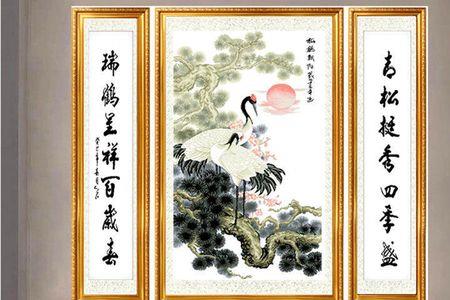 青松挺秀四季盛
松鶴朝阳
瑞鶴呈祥百歲春